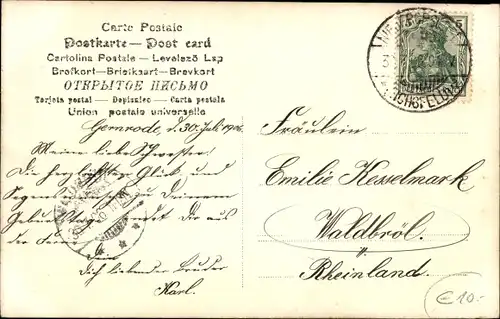 Carte Postale
Postkarte — Post card
Cartolina Postale — Levelező Lap
Brefkort — Briefkaart — Brevkort
ОТКРЫТОЕ ПИСЬМО
Tarjeta postal — Dopisnice — Carta postala
Union postale universelle
Gernrode, d. 30. Juli 1906.
Meine liebe Schwester!
Die herzlichsten Glück und
Segenswünsche zu Deinem
Geburtstage sendet Dir aus
der Ferne
Dein
Dich liebender Bruder
Karl.
Fräulein
Emilie Kesselmark
Waldbröl.
Rheinland.
(EICHSFELD)
5
€10.-